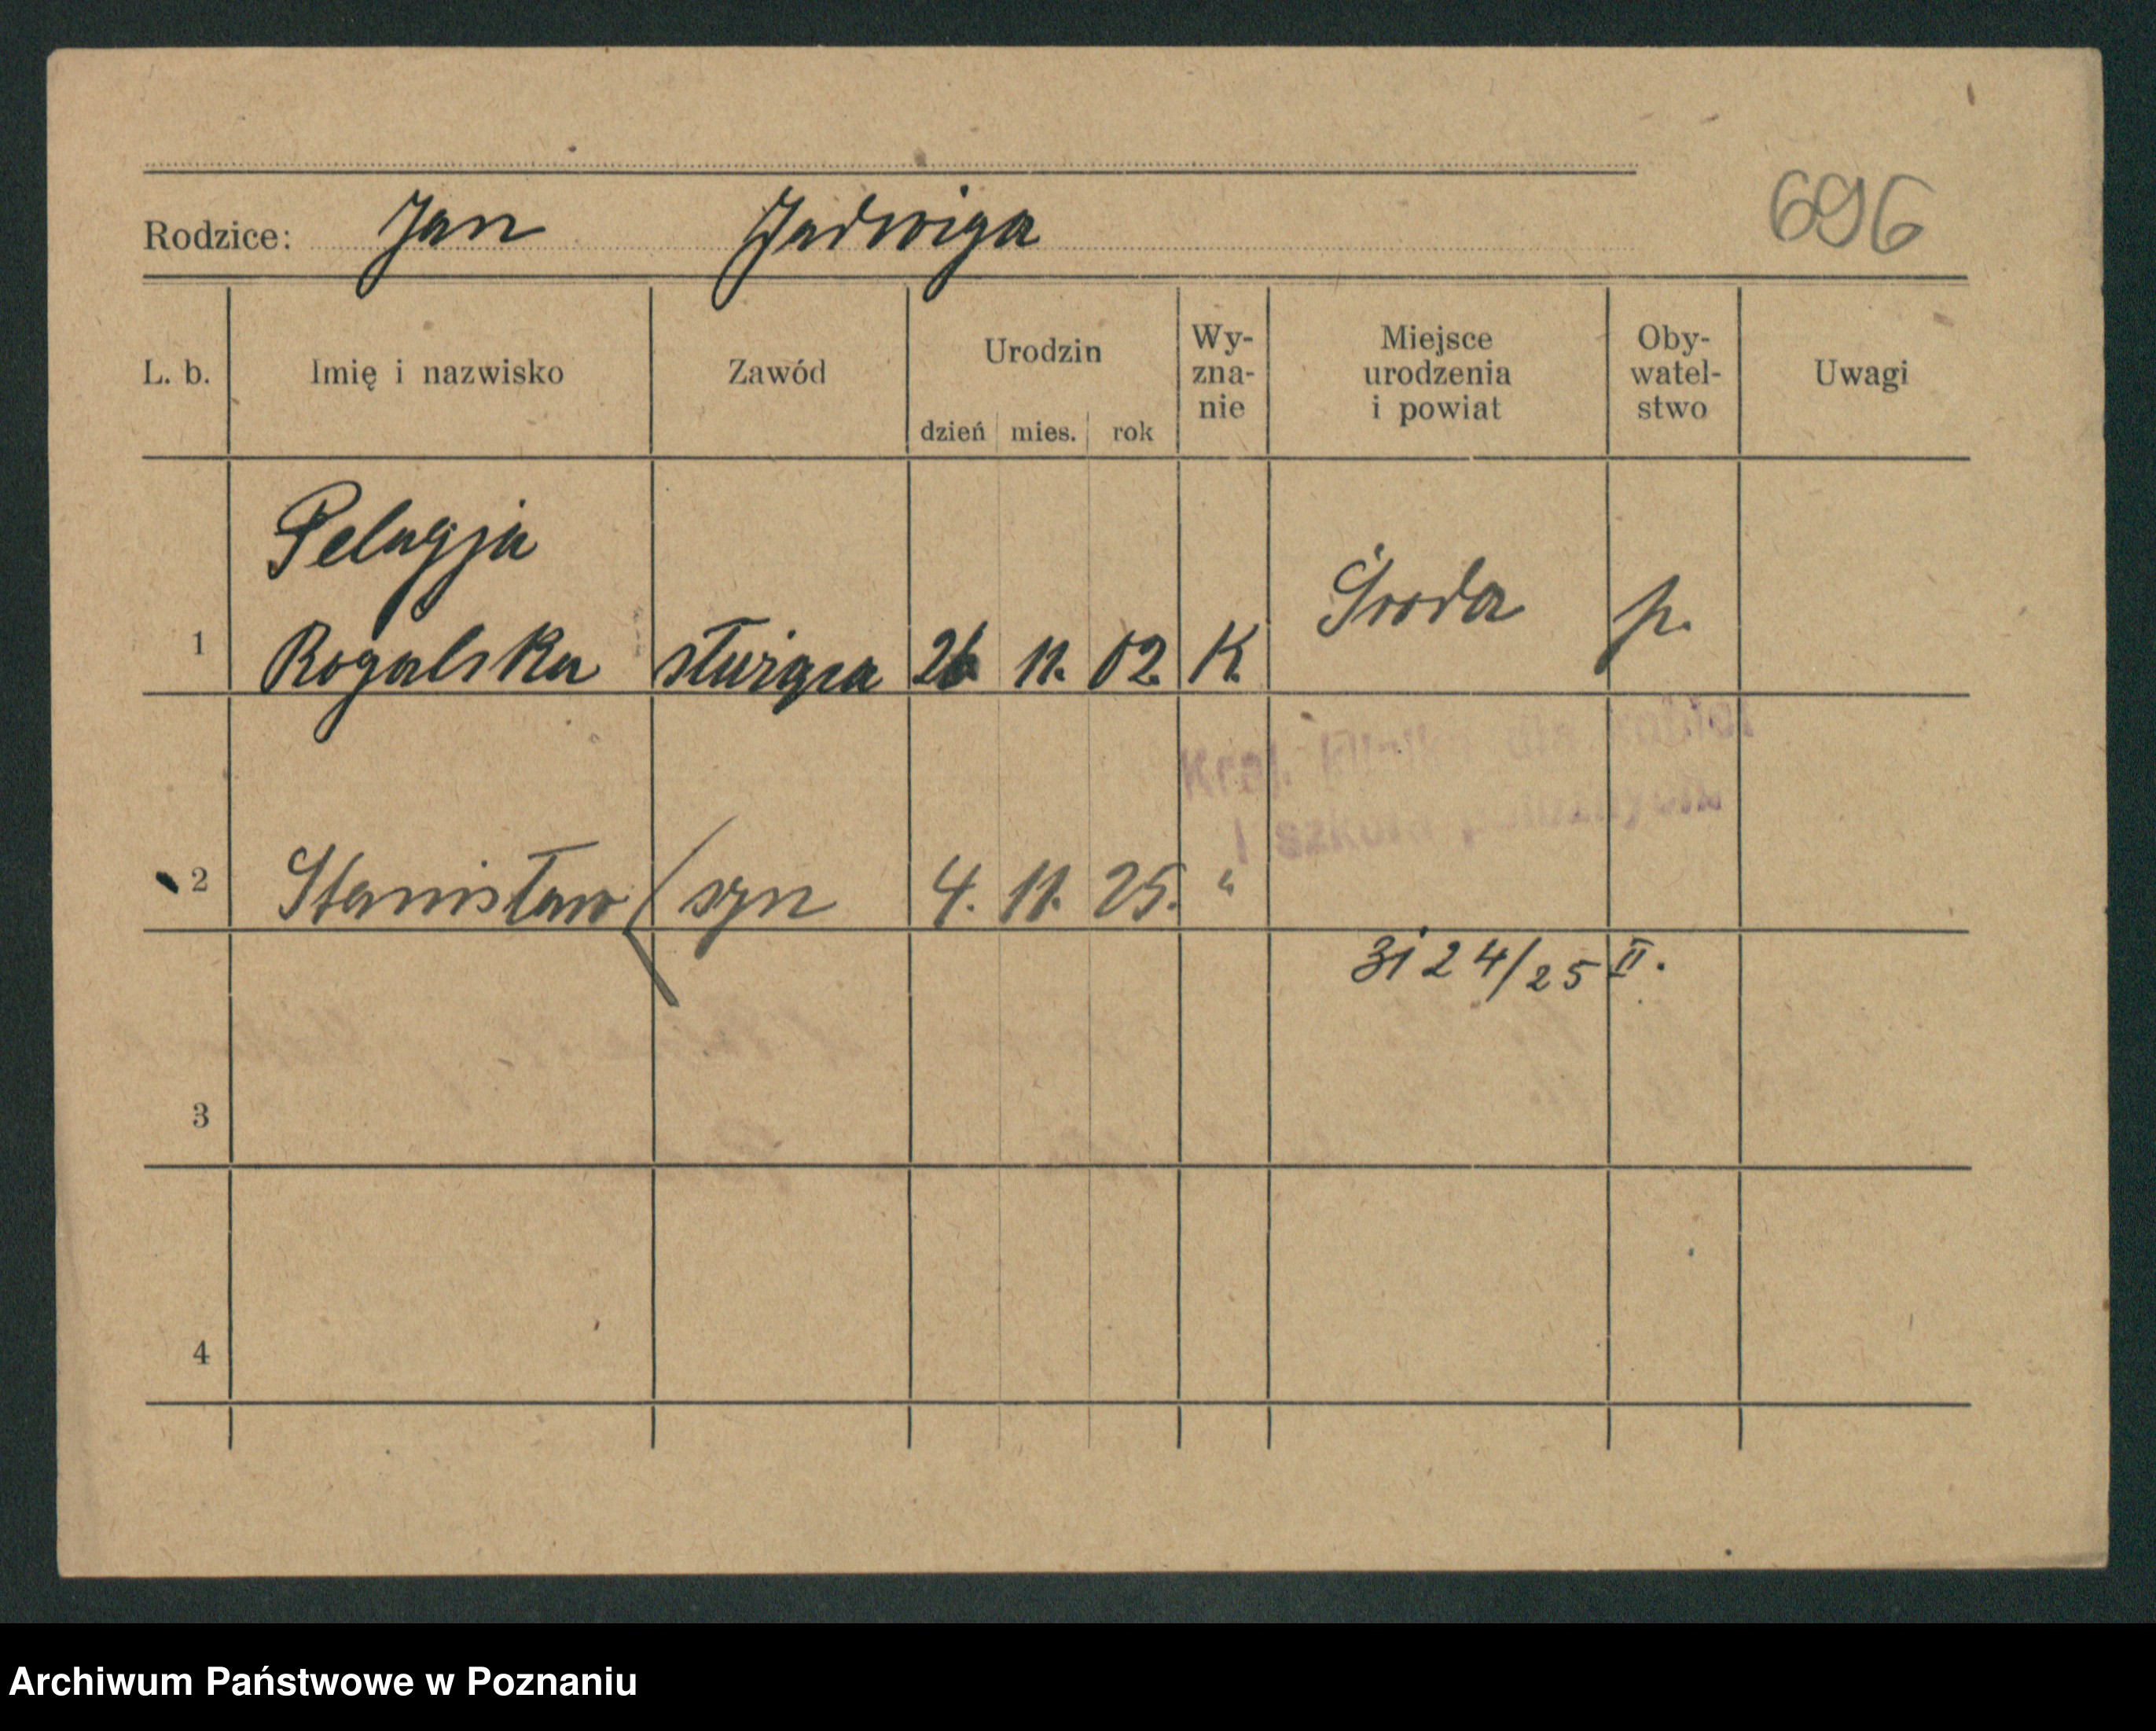 696
Rodzice: Jan Jadwiga
L. b. Imię i nazwisko Zawód Urodzin dzień mies. rok Wy-zna-nie Miejsce urodzenia i powiat Oby-watel-stwo Uwagi
Pelagja
1 Rogalska służąca 26 11. 02. K. Środa p.
Kraj. klinika dla kobiet
i szkoła położnych
2 Stanisław (syn 4. 11. 25. "
24/25 II.
3
4
Archiwum Państwowe w Poznaniu